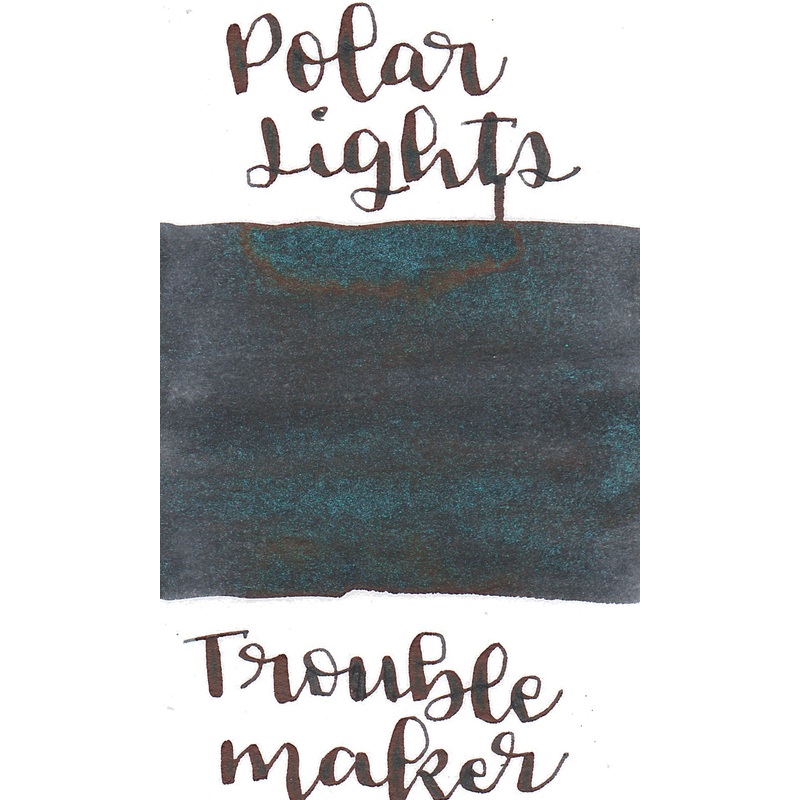 Polar
Lights
Trouble
maker